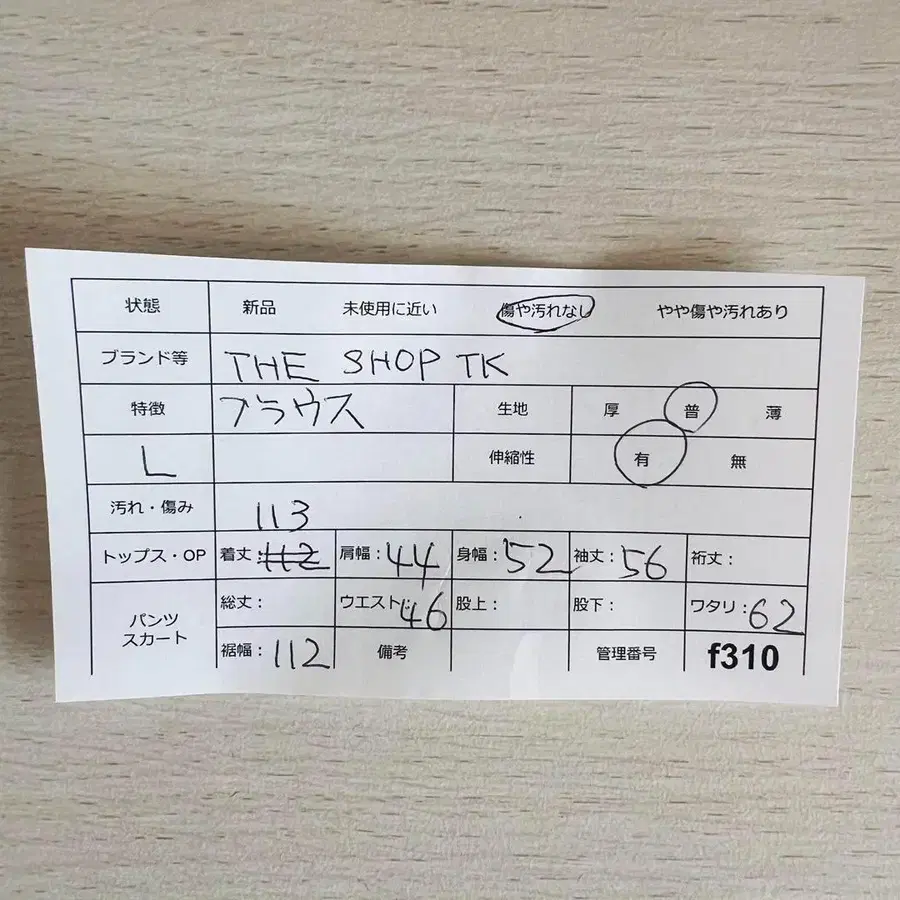 状態 新品 未使用に近い 傷や汚れなし やや傷や汚れあり
ブランド等 THE SHOP TK
特徴 ブラウス 生地 厚 普 薄
L 伸縮性 有 無
汚れ・傷み 113
トップス・OP 着丈:112 肩幅:44 身幅:52 袖丈:56 裄丈:
パンツ スカート 総丈: ウエスト:46 股上: 股下: ワタリ:62
裾幅:112 備考 管理番号 f310